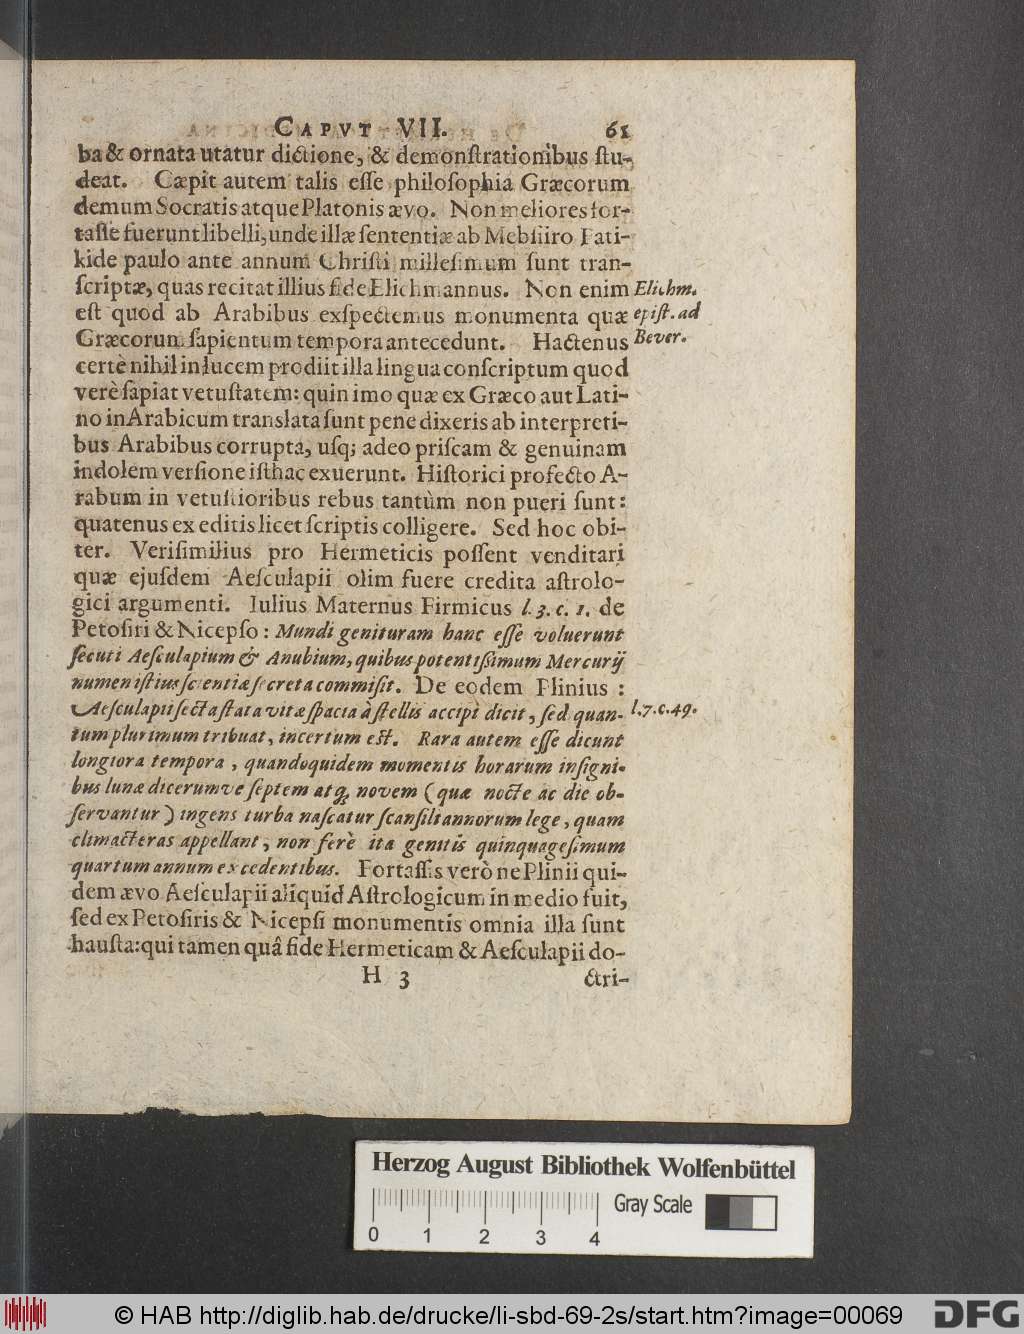 CAPVT VII. 61
ba & ornata utatur dictione, & demonſtrationibus ſtu-
deat. Cæpit autem talis eſſe philoſophia Græcorum
demum Socratis atque Platonis ævo. Non meliores for-
taſſe fuerunt libelli, unde illæ ſententiæ ab Mebſiiro Fati-
kide paulo ante annum Chriſti milleſimum ſunt tran-
ſcriptæ, quas recitat illius fide Elichmannus. Non enim
Elichm.
eſt quod ab Arabibus exſpectemus monumenta quæ
epiſt. ad
Græcorum ſapientum tempora antecedunt. Hactenus
Bever.
certè nihil in lucem prodiit illa lingua conſcriptum quod
verè ſapiat vetuſtatem: quin imo quæ ex Græco aut Lati-
no in Arabicum translata ſunt pene dixeris ab interpreti-
bus Arabibus corrupta, uſq; adeo priſcam & genuinam
indolem verſione iſthac exuerunt. Hiſtorici profecto A-
rabum in vetuſtioribus rebus tantùm non pueri ſunt:
quatenus ex editis licet ſcriptis colligere. Sed hoc obi-
ter. Veriſimilius pro Hermeticis poſſent venditari
quæ ejuſdem Aeſculapii olim fuere credita aſtrolo-
gici argumenti. Iulius Maternus Firmicus l. 3. c. 1. de
Petoſiri & Nicepſo: Mundi genituram hanc eſſe voluerunt
ſecuti Aeſculapium & Anubium, quibus potentißimum Mercurij
numen iſtius ſcientiæ ſecreta commiſit. De eodem Plinius:
Aeſculapii ſecta ſtata vitæ ſpacia à ſtellis accipi dicit, ſed quan-
l. 7. c. 49.
tum plurimum tribuat, incertum eſt. Rara autem eſſe dicunt
longiora tempora, quandoquidem momentis horarum inſigni-
bus lunæ dicerumve ſeptem atq; novem (quæ nocte ac die ob-
ſervantur) ingens turba naſcatur ſcanſili annorum lege, quam
climacteras appellant, non ferè ita genitis quinquageſimum
quartum annum excedentibus. Fortaſſis verò ne Plinii qui-
dem ævo Aeſculapii aliquid Aſtrologicum in medio fuit,
ſed ex Petoſiris & Nicepſi monumentis omnia illa ſunt
hauſta: qui tamen quâ fide Hermeticam & Aeſculapii do-
H 3 ctri-
Herzog August Bibliothek Wolfenbüttel
Gray Scale
0 1 2 3 4
© HAB http://diglib.hab.de/drucke/li-sbd-69-2s/start.htm?image=00069
DFG